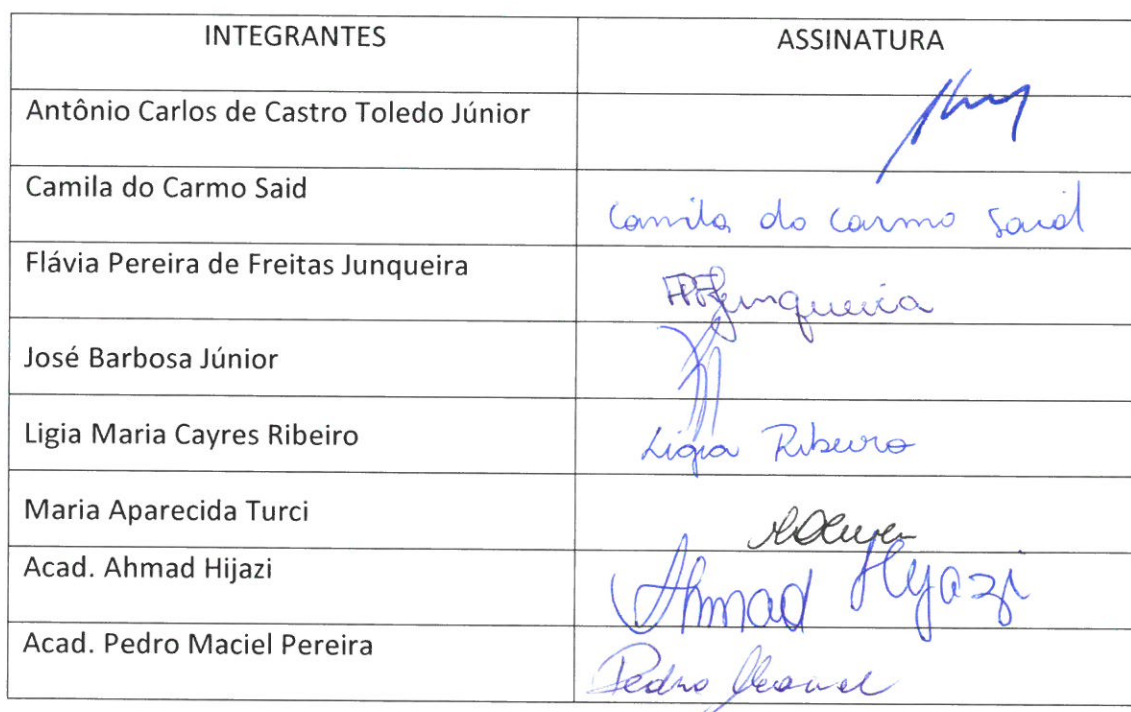 INTEGRANTES ASSINATURA
Antônio Carlos de Castro Toledo Júnior
Camila do Carmo Said Camila do Carmo Said
Flávia Pereira de Freitas Junqueira FPFJunqueira
José Barbosa Júnior
Ligia Maria Cayres Ribeiro Ligia Ribeiro
Maria Aparecida Turci
Acad. Ahmad Hijazi Ahmad Hijazi
Acad. Pedro Maciel Pereira Pedro Maciel